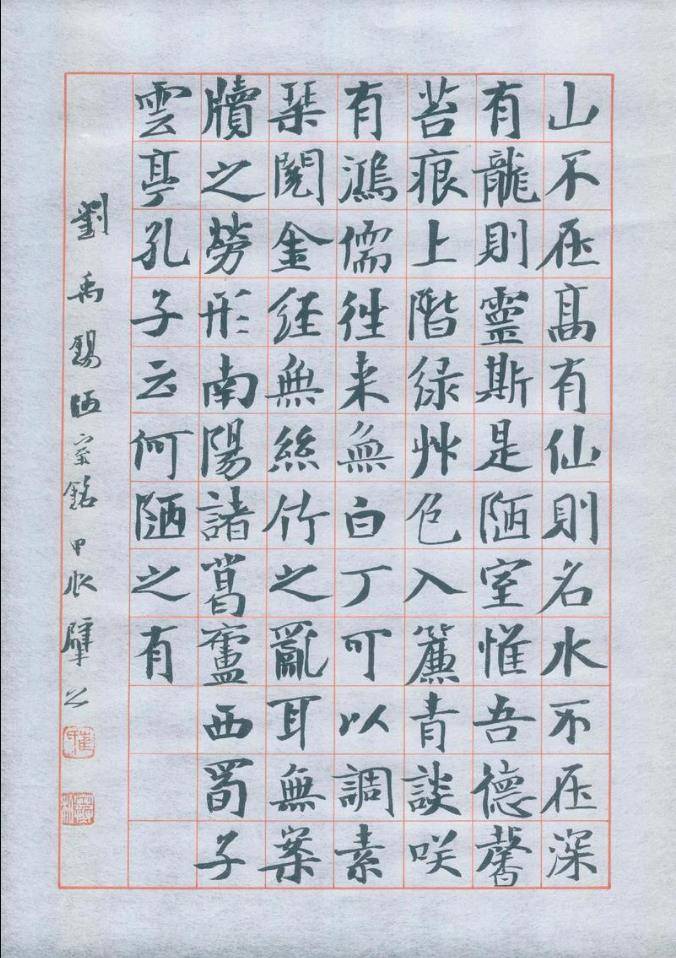 山不在高有仙則名水不在深
有龍則靈斯是陋室惟吾德馨
苔痕上階緑艸色入簾青談咲
有鴻儒徃来無白丁可以調素
琹閲金経無絲竹之亂耳無案
牘之勞形南陽諸葛廬西蜀子
雲亭孔子云何陋之有
劉禹錫陋室銘甲